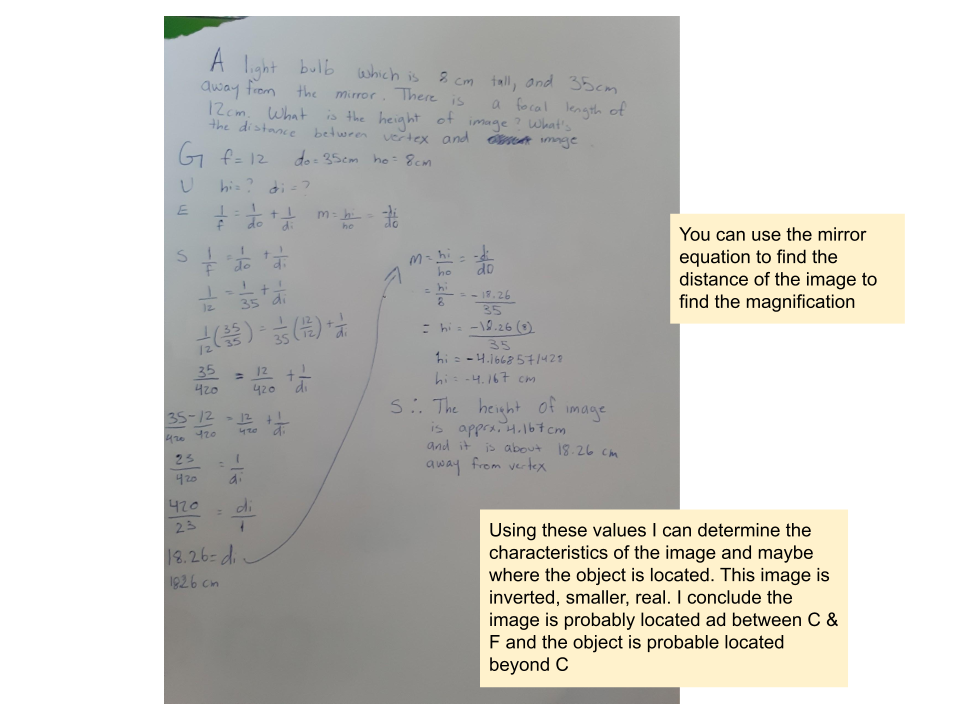 A light bulb which is 8 cm tall, and 35cm
away from the mirror. There is a focal length of
12cm. What is the height of image? What's
the distance between vertex and image.
G f=12 do=35cm ho=8cm
U hi=? di=?
E 1/f = 1/do + 1/di m=hi/ho = -di/do
S 1/f = 1/do + 1/di
1/12 = 1/35 + 1/di
1/12 (35/35) = 1/35 (12/12) + 1/di
35/420 = 12/420 + 1/di
35/420 - 12/420 = 12/420 + 1/di
23/420 = 1/di
420/23 = di/1
18.26 = di
1826 cm
m = hi/ho = -di/do
= hi/8 = -18.26/35
= hi = -18.26(8)/35
hi = -4.1668571428
hi = -4.167 cm
S ∴ The height of image
is apprx. 4.167cm
and it is about 18.26 cm
away from vertex
You can use the mirror
equation to find the
distance of the image to
find the magnification
Using these values I can determine the
characteristics of the image and maybe
where the object is located. This image is
inverted, smaller, real. I conclude the
image is probably located ad between C &
F and the object is probable located
beyond C